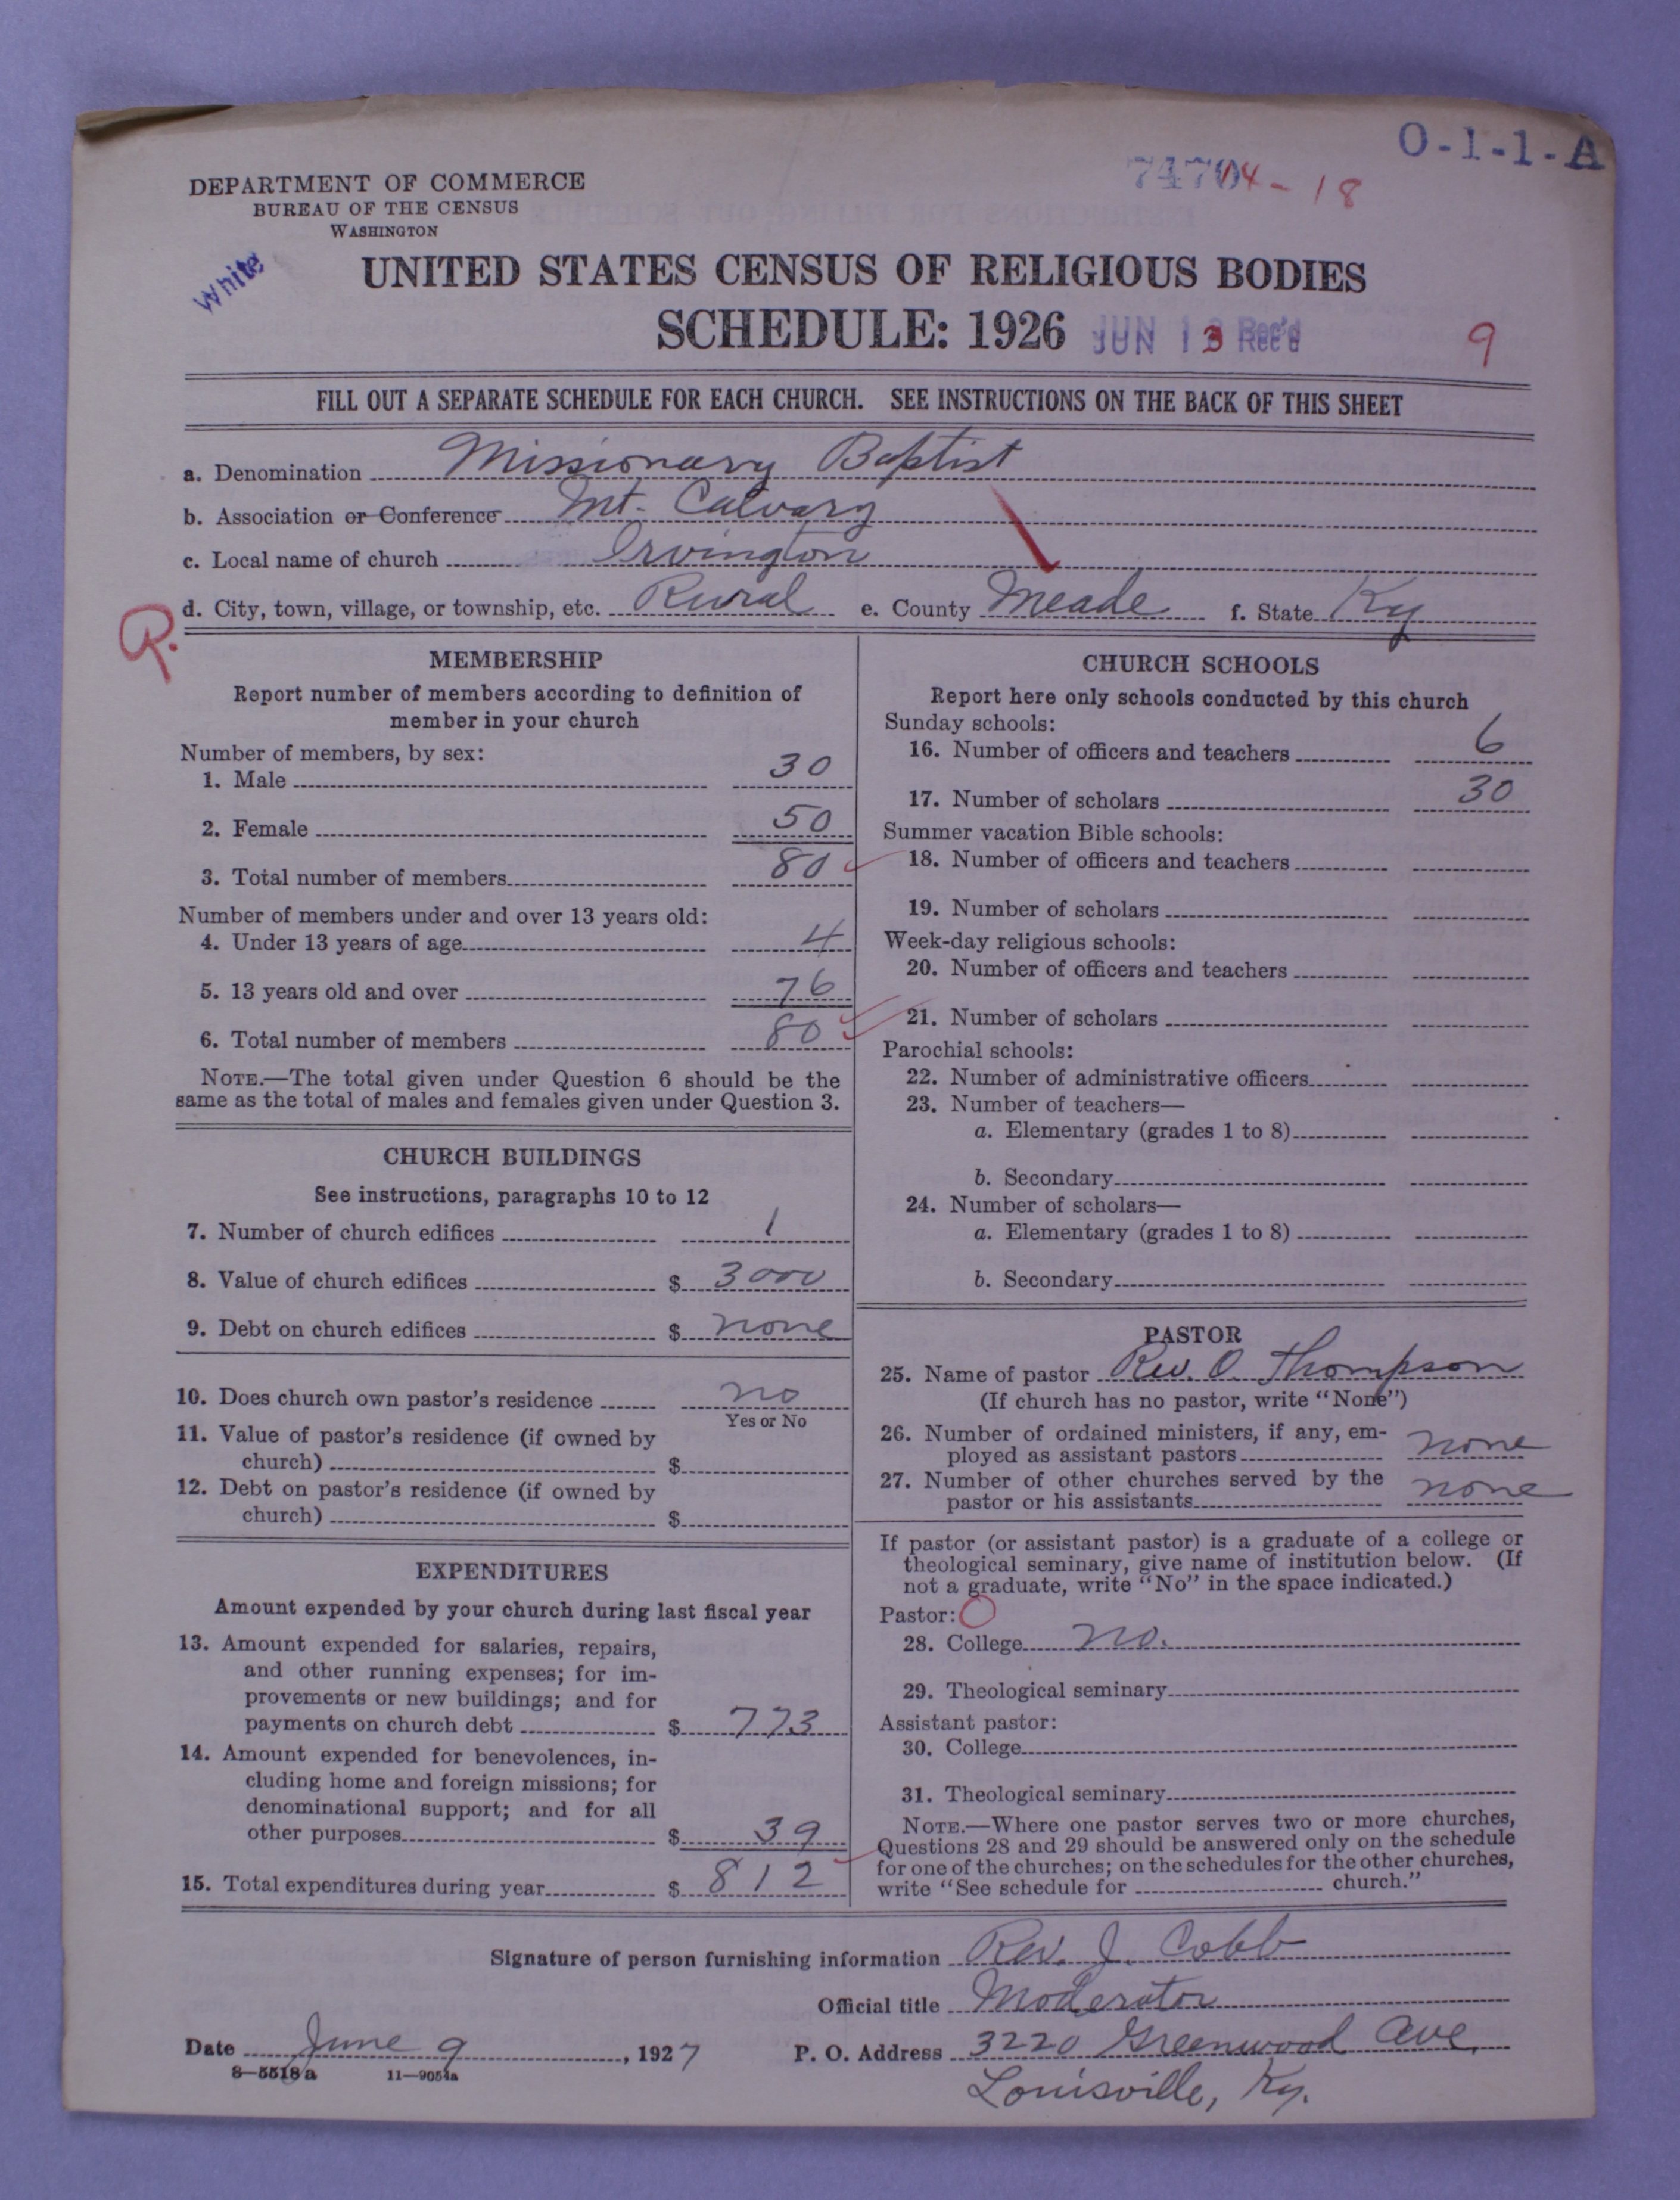 O-1-1-A
DEPARTMENT OF COMMERCE
BUREAU OF THE CENSUS
WASHINGTON
White
UNITED STATES CENSUS OF RELIGIOUS BODIES
SCHEDULE: 1926 JUN 13 Rec'd 9
FILL OUT A SEPARATE SCHEDULE FOR EACH CHURCH. SEE INSTRUCTIONS ON THE BACK OF THIS SHEET
a. Denomination Missionary Baptist
b. Association or Conference Mt. Calvary
c. Local name of church Irvington
R. d. City, town, village, or township, etc. Rural e. County Meade f. State Ky
MEMBERSHIP
Report number of members according to definition of
member in your church
Number of members, by sex:
1. Male 30
2. Female 50
3. Total number of members 80
Number of members under and over 13 years old:
4. Under 13 years of age 4
5. 13 years old and over 76
6. Total number of members 80
NOTE.—The total given under Question 6 should be the
same as the total of males and females given under Question 3.
CHURCH BUILDINGS
See instructions, paragraphs 10 to 12
7. Number of church edifices 1
8. Value of church edifices $ 3000
9. Debt on church edifices $ none
10. Does church own pastor's residence no
Yes or No
11. Value of pastor's residence (if owned by
church) $
12. Debt on pastor's residence (if owned by
church) $
EXPENDITURES
Amount expended by your church during last fiscal year
13. Amount expended for salaries, repairs,
and other running expenses; for im-
provements or new buildings; and for
payments on church debt $ 773
14. Amount expended for benevolences, in-
cluding home and foreign missions; for
denominational support; and for all
other purposes $ 39
15. Total expenditures during year $ 812
CHURCH SCHOOLS
Report here only schools conducted by this church
Sunday schools:
16. Number of officers and teachers 6
17. Number of scholars 30
Summer vacation Bible schools:
18. Number of officers and teachers
19. Number of scholars
Week-day religious schools:
20. Number of officers and teachers
21. Number of scholars
Parochial schools:
22. Number of administrative officers
23. Number of teachers—
a. Elementary (grades 1 to 8)
b. Secondary
24. Number of scholars—
a. Elementary (grades 1 to 8)
b. Secondary
PASTOR
25. Name of pastor Rev. O. Thompson
(If church has no pastor, write "None")
26. Number of ordained ministers, if any, em-
ployed as assistant pastors none
27. Number of other churches served by the
pastor or his assistants none
If pastor (or assistant pastor) is a graduate of a college or
theological seminary, give name of institution below. (If
not a graduate, write "No" in the space indicated.)
Pastor:
28. College no.
29. Theological seminary
Assistant pastor:
30. College
31. Theological seminary
NOTE.—Where one pastor serves two or more churches,
Questions 28 and 29 should be answered only on the schedule
for one of the churches; on the schedules for the other churches,
write "See schedule for church."
Signature of person furnishing information Rev. J. Cobb
Official title Moderator
Date June 9, 1927 P. O. Address 3220 Greenwood Ave.
8—5518a 11—9054a Louisville, Ky.